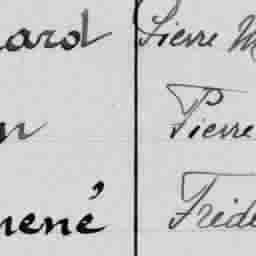 ard Pierre M
n Pierre
mené Fréde